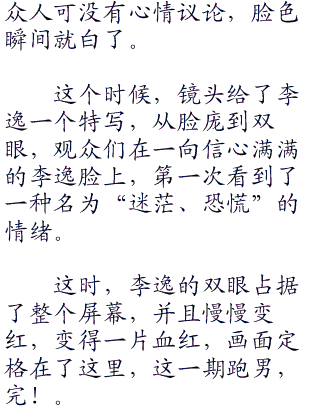 众人可没有心情议论，脸色
瞬间就白了。
这个时候，镜头给了李
逸一个特写，从脸庞到双
眼，观众们在一向信心满满
的李逸脸上，第一次看到了
一种名为“迷茫、恐慌”的
情绪。
这时，李逸的双眼占据
了整个屏幕，并且慢慢变
红，变得一片血红，画面定
格在了这里，这一期跑男，
完！。